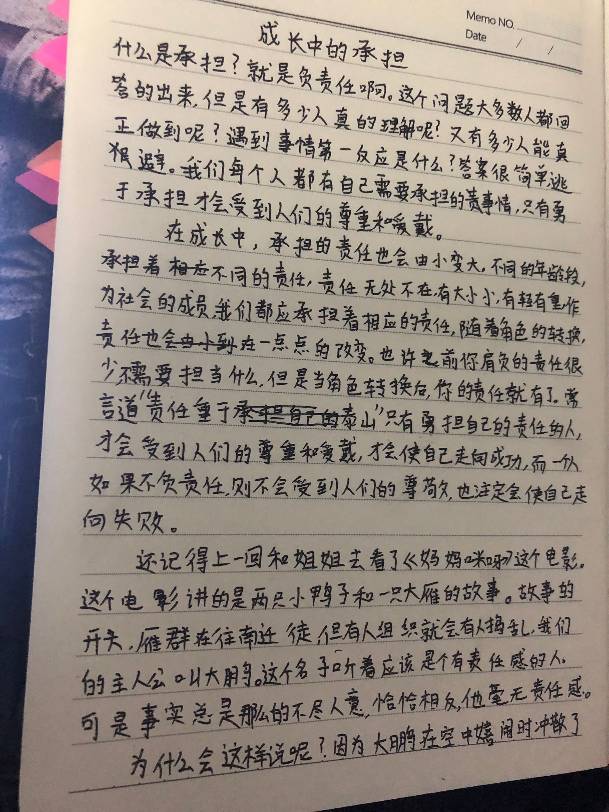 Memo NO.
Date / /
成长中的承担
什么是承担？就是负责任啊。这个问题大多数人都回
答的出来，但是有多少人真的理解呢？又有多少人能真
正做到呢？遇到事情第一反应是什么？答案很简单逃
狠避。我们每个人都有自己需要承担的责事情，只有勇
于承担才会受到人们的尊重和爱戴。
在成长中，承担的责任也会由小变大。不同的年龄段，
承担着相应不同的责任，责任无处不在，有大小小，有轻有重，作
为社会的成员，我们都应承担着相应的责任，随着角色的转换，
责任也会由小到在一点点的改变。也许之前你肩负的责任很
少不需要担当什么，但是当角色转换后，你的责任就有了。常
言道“责任重于承担自己的泰山”只有勇担自己的责任的人，
才会受到人们的尊重和爱戴，才会使自己走向成功，而一个人
如果不负责任，则不会受到人们的尊敬，也注定会使自己走
向失败。
还记得上一回和姐姐去看了《妈妈咪呀》这个电影。
这个电影讲的是两只小鸭子和一只大雁的故事。故事的
开头，雁群在往南迁徒，但有人组织就会有人捣乱，我们
的主人公叫大鹏。这个名子听着应该是个有责任感的人。
可是事实总是那么的不尽人意，恰恰相反，他毫无责任感。
为什么会这样说呢？因为大鹏在空中嬉闹时冲散了